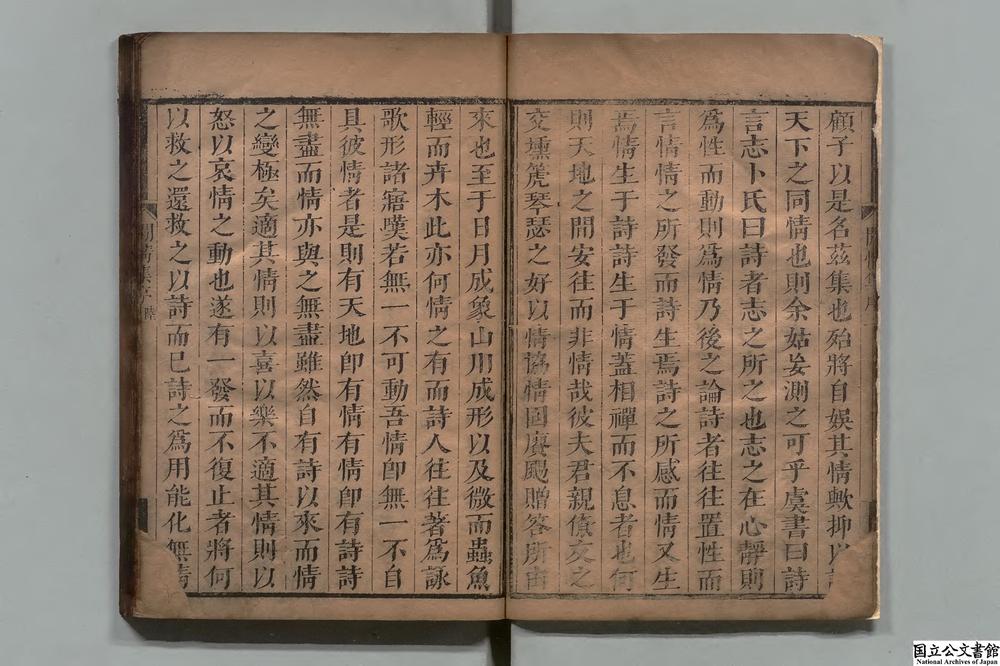 顧子以是名茲集也殆將自娛其情歟抑以
天下之同情也則余姑妄測之可乎虞書曰詩
言志卜氏曰詩者志之所之也志之在心靜則
為性而動則為情乃後之論詩者往往置性而
言情情之所發而詩生焉詩之所感而情又生
焉情生于詩詩生于情蓋相禪而不息者也何
則天地之間安往而非情哉彼夫君親僚友之
交壎篪琴瑟之好以情協情固賡颺贈答所由
來也至于日月成象山川成形以及微而蟲魚
輕而卉木此亦何情之有而詩人往往著為詠
歌形諸寤嘆若無一不可動吾情即無一不自
具彼情者是則有天地即有情有情即有詩詩
無盡而情亦與之無盡雖然自有詩以來而情
之變極矣適其情則以喜以樂不適其情則以
怒以哀情之動也遂有一發而不復止者將何
以救之還救之以詩而已詩之為用能化無情
国立公文書館
National Archives of Japan